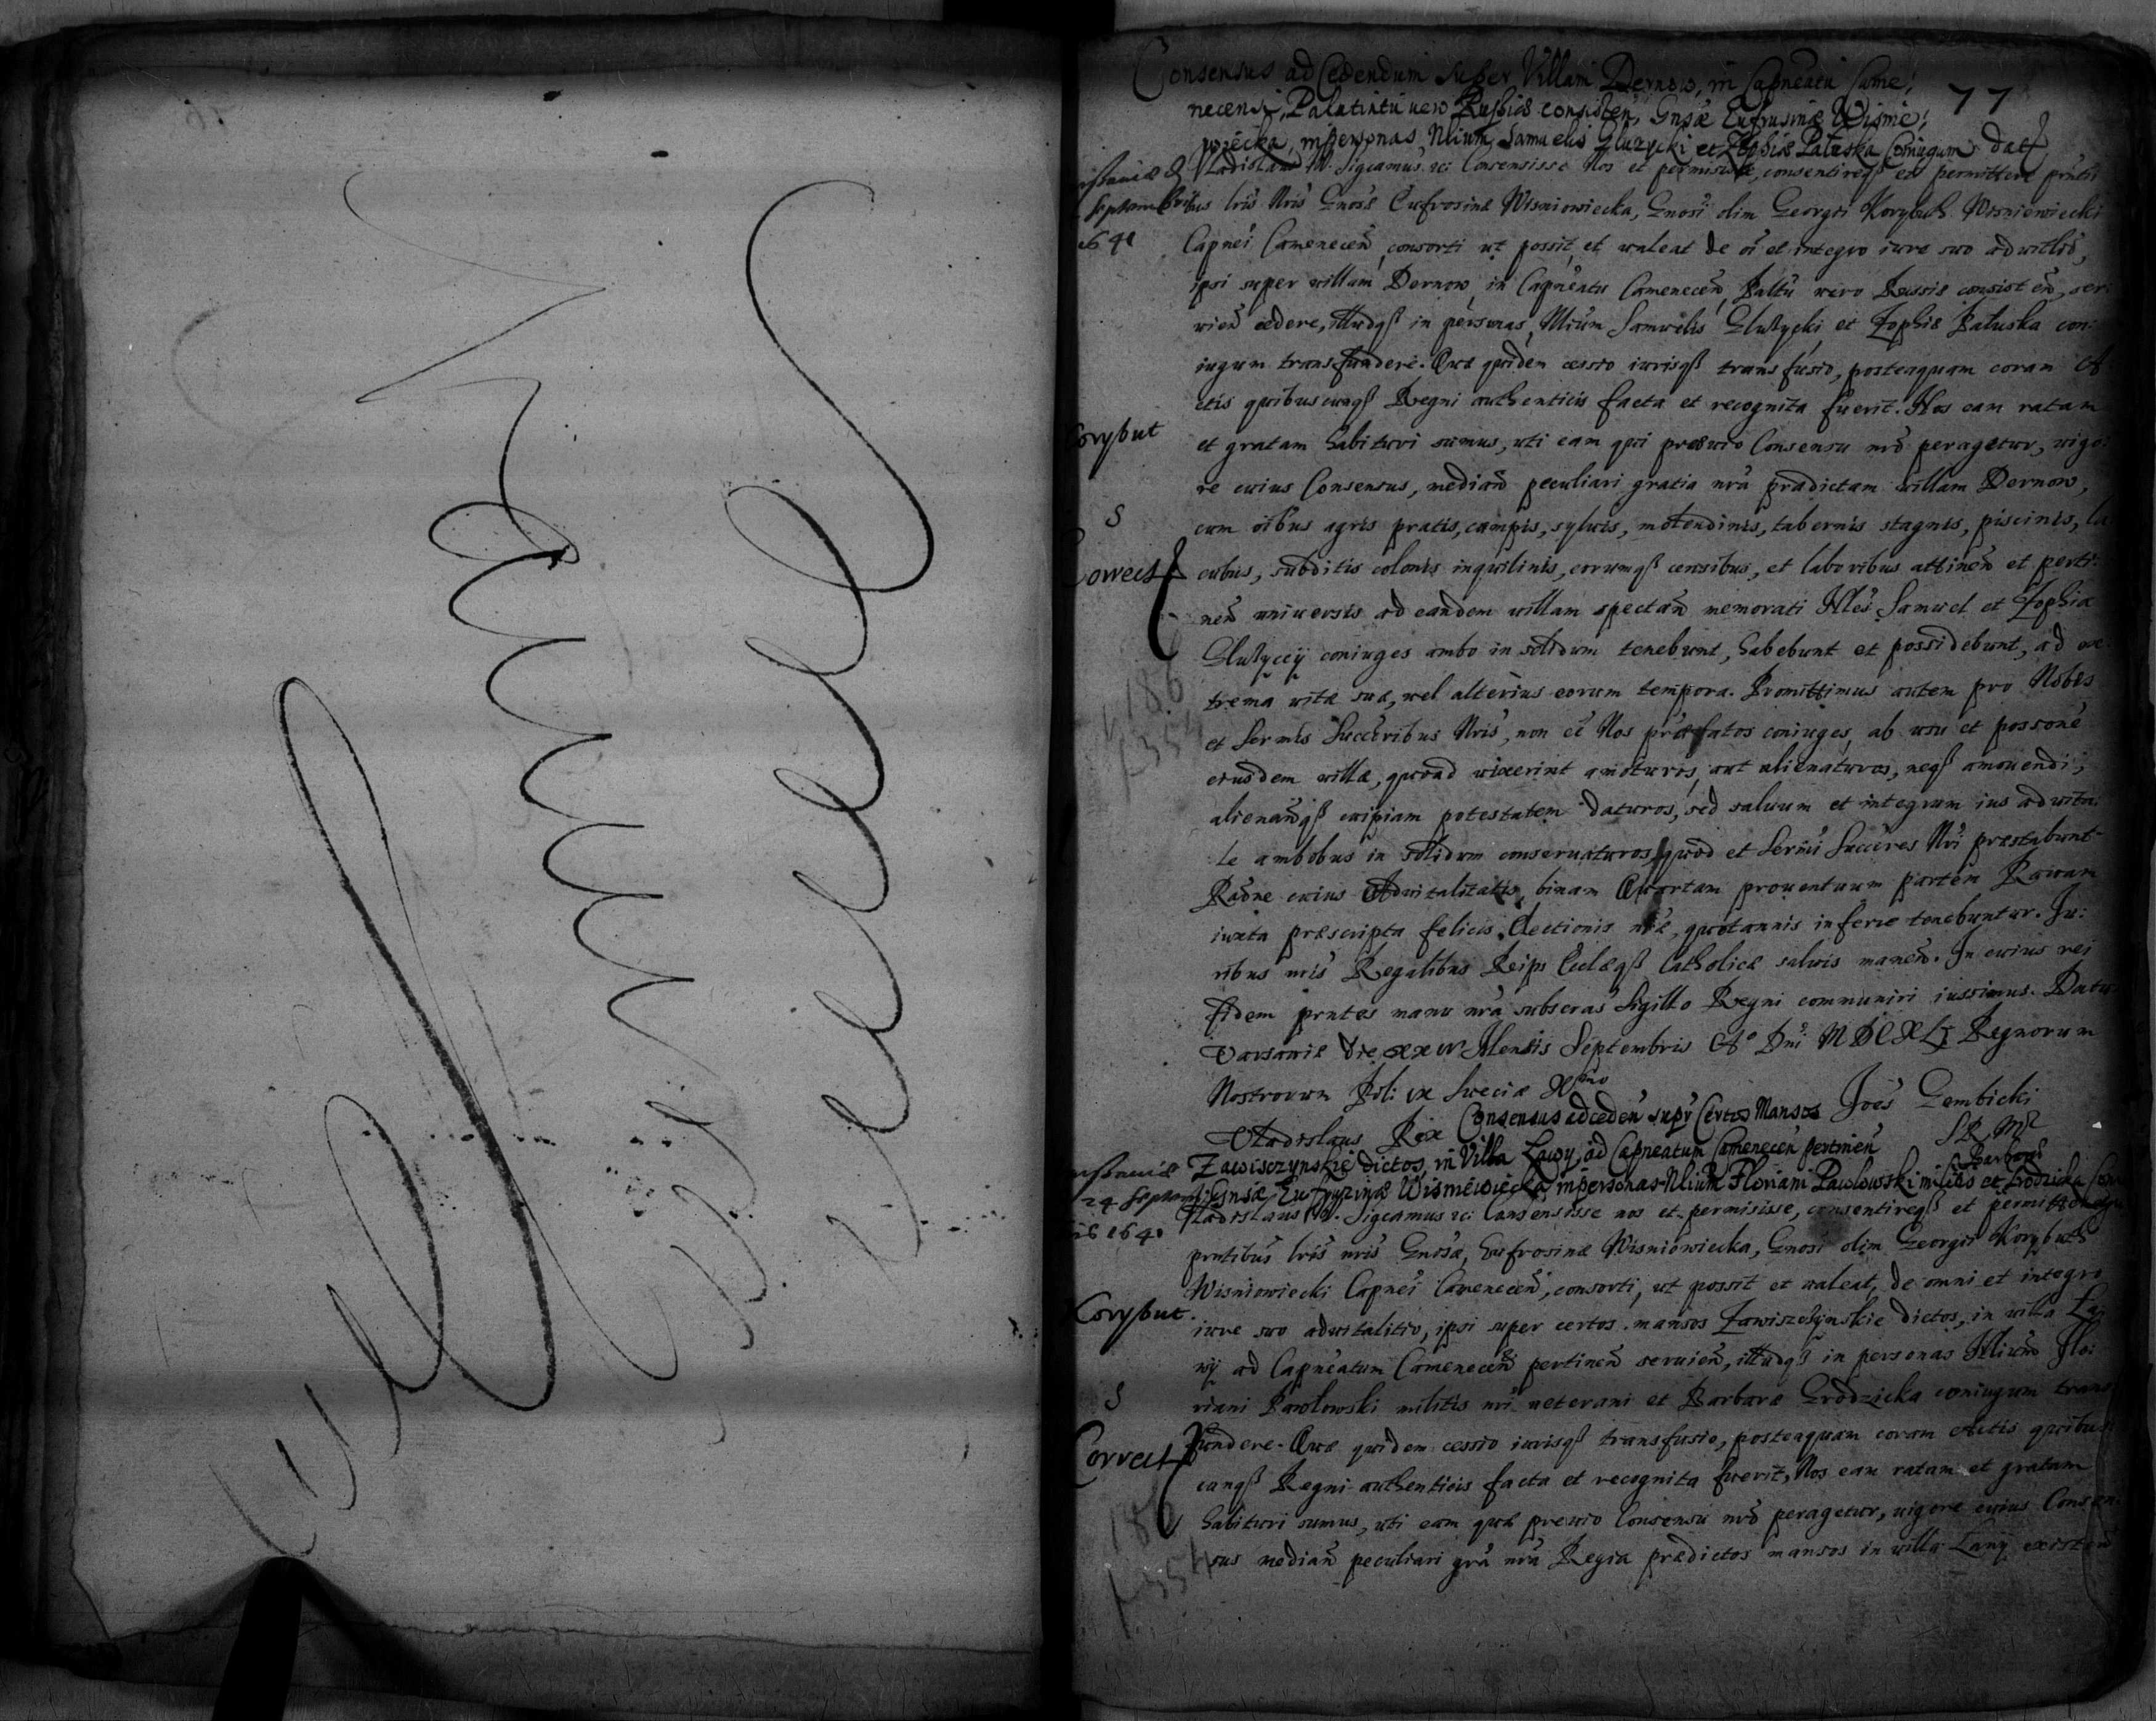 77
Consensus ad Cedendum super Villam Dernow, in Capneatu Came;
necensi, Palatintu vero Russiae consisten, Gnsae Eufrusinae Wisnie;
wiecka, in personas Nlium Samuelis Gluzycki et Zophiae Paluska Coniugum dat
Vladislaus IV. Sigcamus etc Consensisse Nos et permisisse, consentireqß et permittere pntib
Septembris
1641
bus lris Nris Gnosae Eufrosinae Wisniowiecka, Gnosi olim Georgii Korybuth Wisniewiecki
Capnei Camenecen, consorti ut possit et waleat de oi et integro iure suo adwitlio,
ipsi super willam Dernow, in Capneatu Camenecen, Paltu wero Russiae consisten, ser:
wien cedere, illudqß in personas Nlium Samuelis Glużycki et Zophiae Pałuska con:
iugum transfundere. Quae quidem cessio iurisqß transfusio, posteaquam coram A
ctis quibuscunqß Regni authenticis facta et recognita fuerit. Nos eam ratam
Corybut
et gratam habituri sumus, uti eam qui praewio Consensu nro peragetur, uigo:
re cuius Consensus, median peculiari gratia nra pradictam willam Dernow,
S
cum oibus agris pratis, campis, sylwis, molendinis, tabernis stagnis, piscinis, la
Correct
cubus, subditis colonis inquilinis, eorumqß censibus, et laboribus attinen et perti:
nen uniuersis ad eandem willam spectan memorati Nles Samuel et Zophia
Glużyccy coniuges ambo in solidum tenebunt, habebunt et possidebunt, ad ex
186
trema witae suae, wel alterius eorum tempora. Promittimus autem pro Nobis
354
et Sermis Succeribus Nris, non ee Nos praefatos coniuges, ab usu et possone
eiusdem willae, quoad wixerint amoturos, aut alienaturos, neqß amouendi,
alienandiqß cuipiam potestatem daturos, sed saluum et integrum ius adwita:
le ambobus in solidum conseruaturos, quod et Sermi Succeres Nri praestabunt
Raone cuius Adwitalitatis, binam Quartam prouentuum partem Rawam
iuxta praescripta felicis Electionis nrae, quotannis inferre tenebuntur. Iu:
ribus nris Regalibus Reips Ecclaeqß Catholicae salwis manen. In cuius rei
fidem pntes manu nra subscras Sigillo Regni communiri iussimus. Datu
Varsawiae die xxiv Mensis Septembris Ao Dni MDCXLI Regnorum
Nostrorum Pol: ix Sueciae Xmo
Vladislaus Rex
Ioes Gembicki
Consensus ad ceden supr Certos Mansos
Zawisczynskie dictos, in Villa Lawy, ad Capneatum Camenecen pertinen
Gnsae Eufruzinae Wisniewiecka, in personas Nlium Floriani Pawlowski militis et Barbarae Grodzicka Con
24 Septem
1641
Vladislaus IV. Sigcamus etc Consensisse nos et permisisse, consentireqß et permittere
pntibus lris nris Gnosae, Eufrosinae Wisniowiecka, Gnosi olim Georgii Korybuth
Wisniowiecki Capnei Camenecen, consorti, ut possit et waleat, de omni et integro
Corybut
iure suo adwitalitio, ipsi super certos mansos Zawiszczynskie dictos, in willa La
wy ad Capneatum Camenecen pertinen seruien, illudqß in personas Nlium Flo:
S
riani Pawłowski militis nri ueterani et Barbarae Grodzicka coniugum trans
Correct
fundere. Quae quidem cessio iurisqß transfusio, posteaquam coram Actis quibus
cunqß Regni authenticis facta et recognita fuerit, Nos eam ratam et gratam
186
habituri sumus, uti eam quae prewio Consensu nro peragetur, uigore cuius Consen
354
sus median peculiari gra nra Regia praedictos mansos in willa Lawy existen